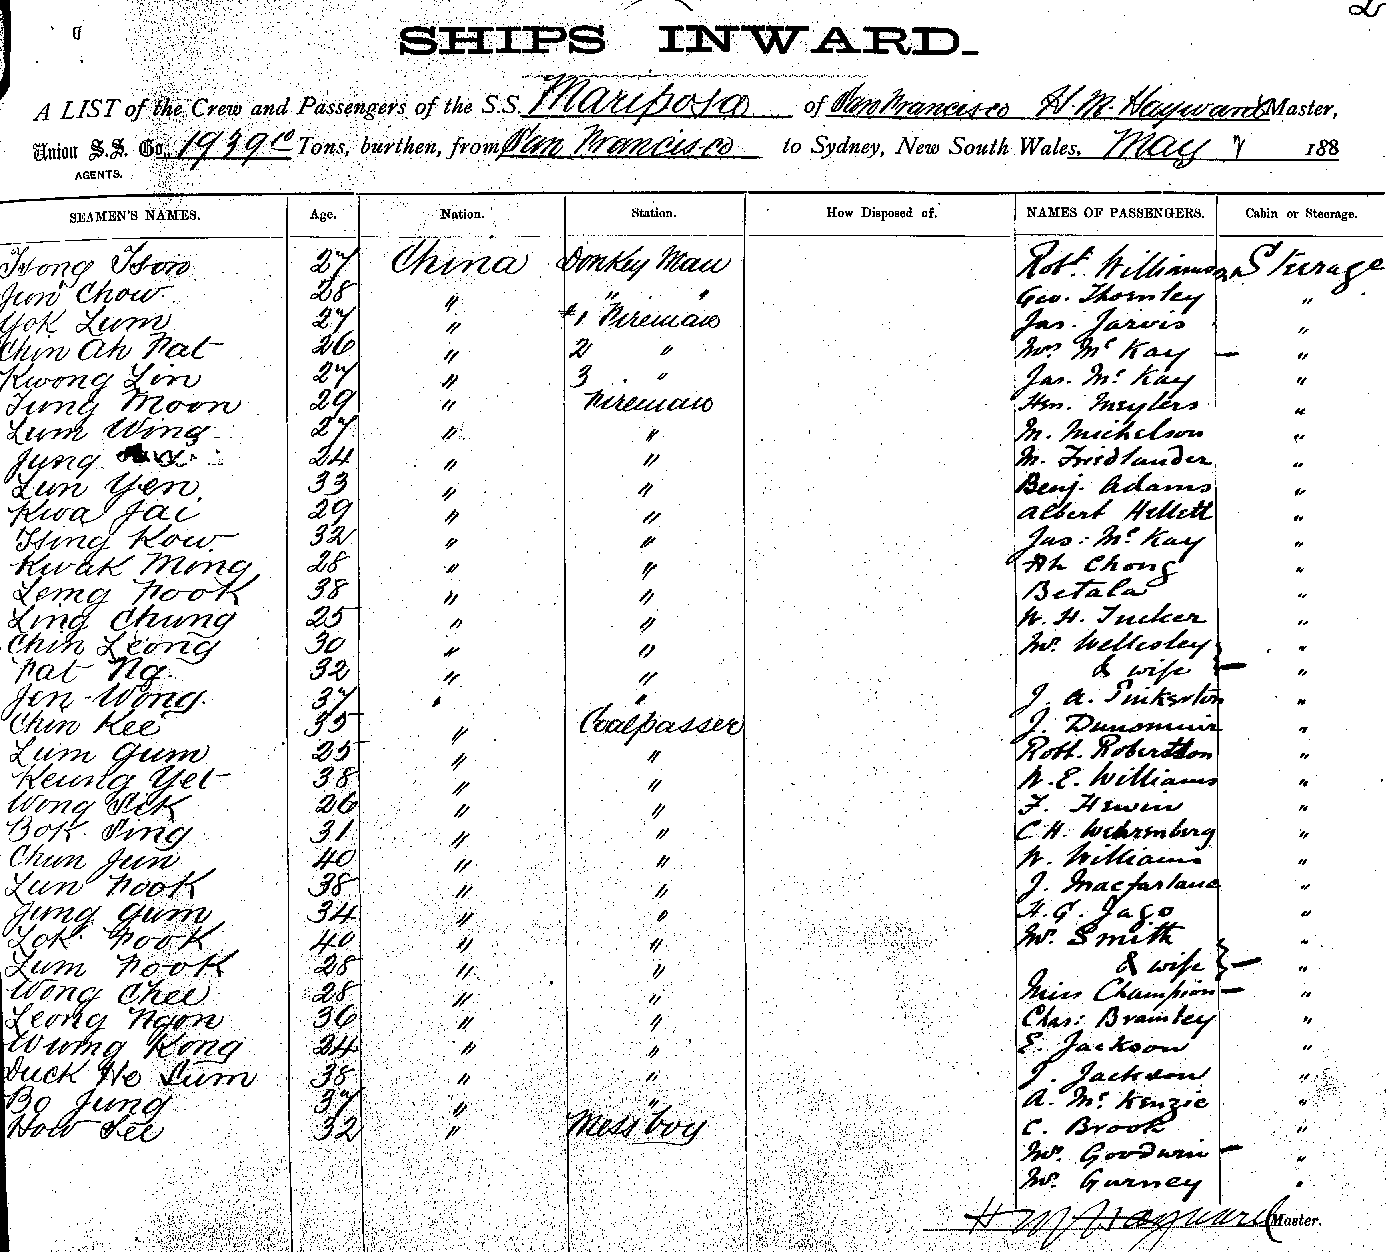 2
SHIPS INWARD.
A LIST of the Crew and Passengers of the S.S. Mariposa of San Francisco H. M. Hayward Master,
Union S.S. Co. 1939 Tons, burthen, from San Francisco to Sydney, New South Wales, May 7 188
AGENTS.
SEAMEN'S NAMES. Age. Nation. Station. How Disposed of. NAMES OF PASSENGERS. Cabin or Steerage.
Tsong Tson 27 China Donkey Man Robt. Williamson Steerage
Jun Chow 28 " " " Geo. Thornley "
Yok Lum 27 " #1 Fireman Jas. Jarvis "
Chin Ah Fat 26 " 2 " Mrs McKay — "
Kwong Lin 27 " 3 " Jas. McKay "
Jung Moon 29 " Fireman Hen. Meylers "
Lum Wing 27 " " M. Michelson "
Jung 24 " " M. Friedlander "
Lun Yen 33 " " Benj. Adams "
Kwa Jai 29 " " Albert Hellett "
Tsing Kow 32 " " Jas: McKay "
Kwak Mong 28 " " Ah Chong "
Leing Fook 38 " " Betala "
Ling Chung 25 " " W. H. Tucker "
Chin Leong 30 " " Mr. Wellesley "
Fat Ng 32 " " & wife — "
Jen Wong 37 " " J. A. Pinkerton "
Chin Kee 35 " Coalpasser J. Dunsmuir "
Lum Gum 25 " " Robt. Robertson "
Keung Yet 38 " " W. E. Williams "
Wong Sek 26 " " F. Hewin "
Bok Sing 31 " " C. H. Wehrenberg "
Chun Jun 40 " " W. Williams "
Lun Fook 38 " " J. Macfarlane "
Jung Gum 34 " " H. G. Jago "
Lok Fook 40 " " Mr. Smith "
Lum Fook 28 " " & wife — "
Wong Chee 28 " " Miss Champion — "
Leong Ngon 36 " " Chas: Bramley "
Wung Kong 24 " " E. Jackson "
Duck He Sum 38 " " J. Jackson "
Bo Jung 37 " " A. McKenzie "
How See 32 " Mess boy C. Brook "
Mrs. Goodwin — "
Mr. Gurney "
H M Hayward Master.